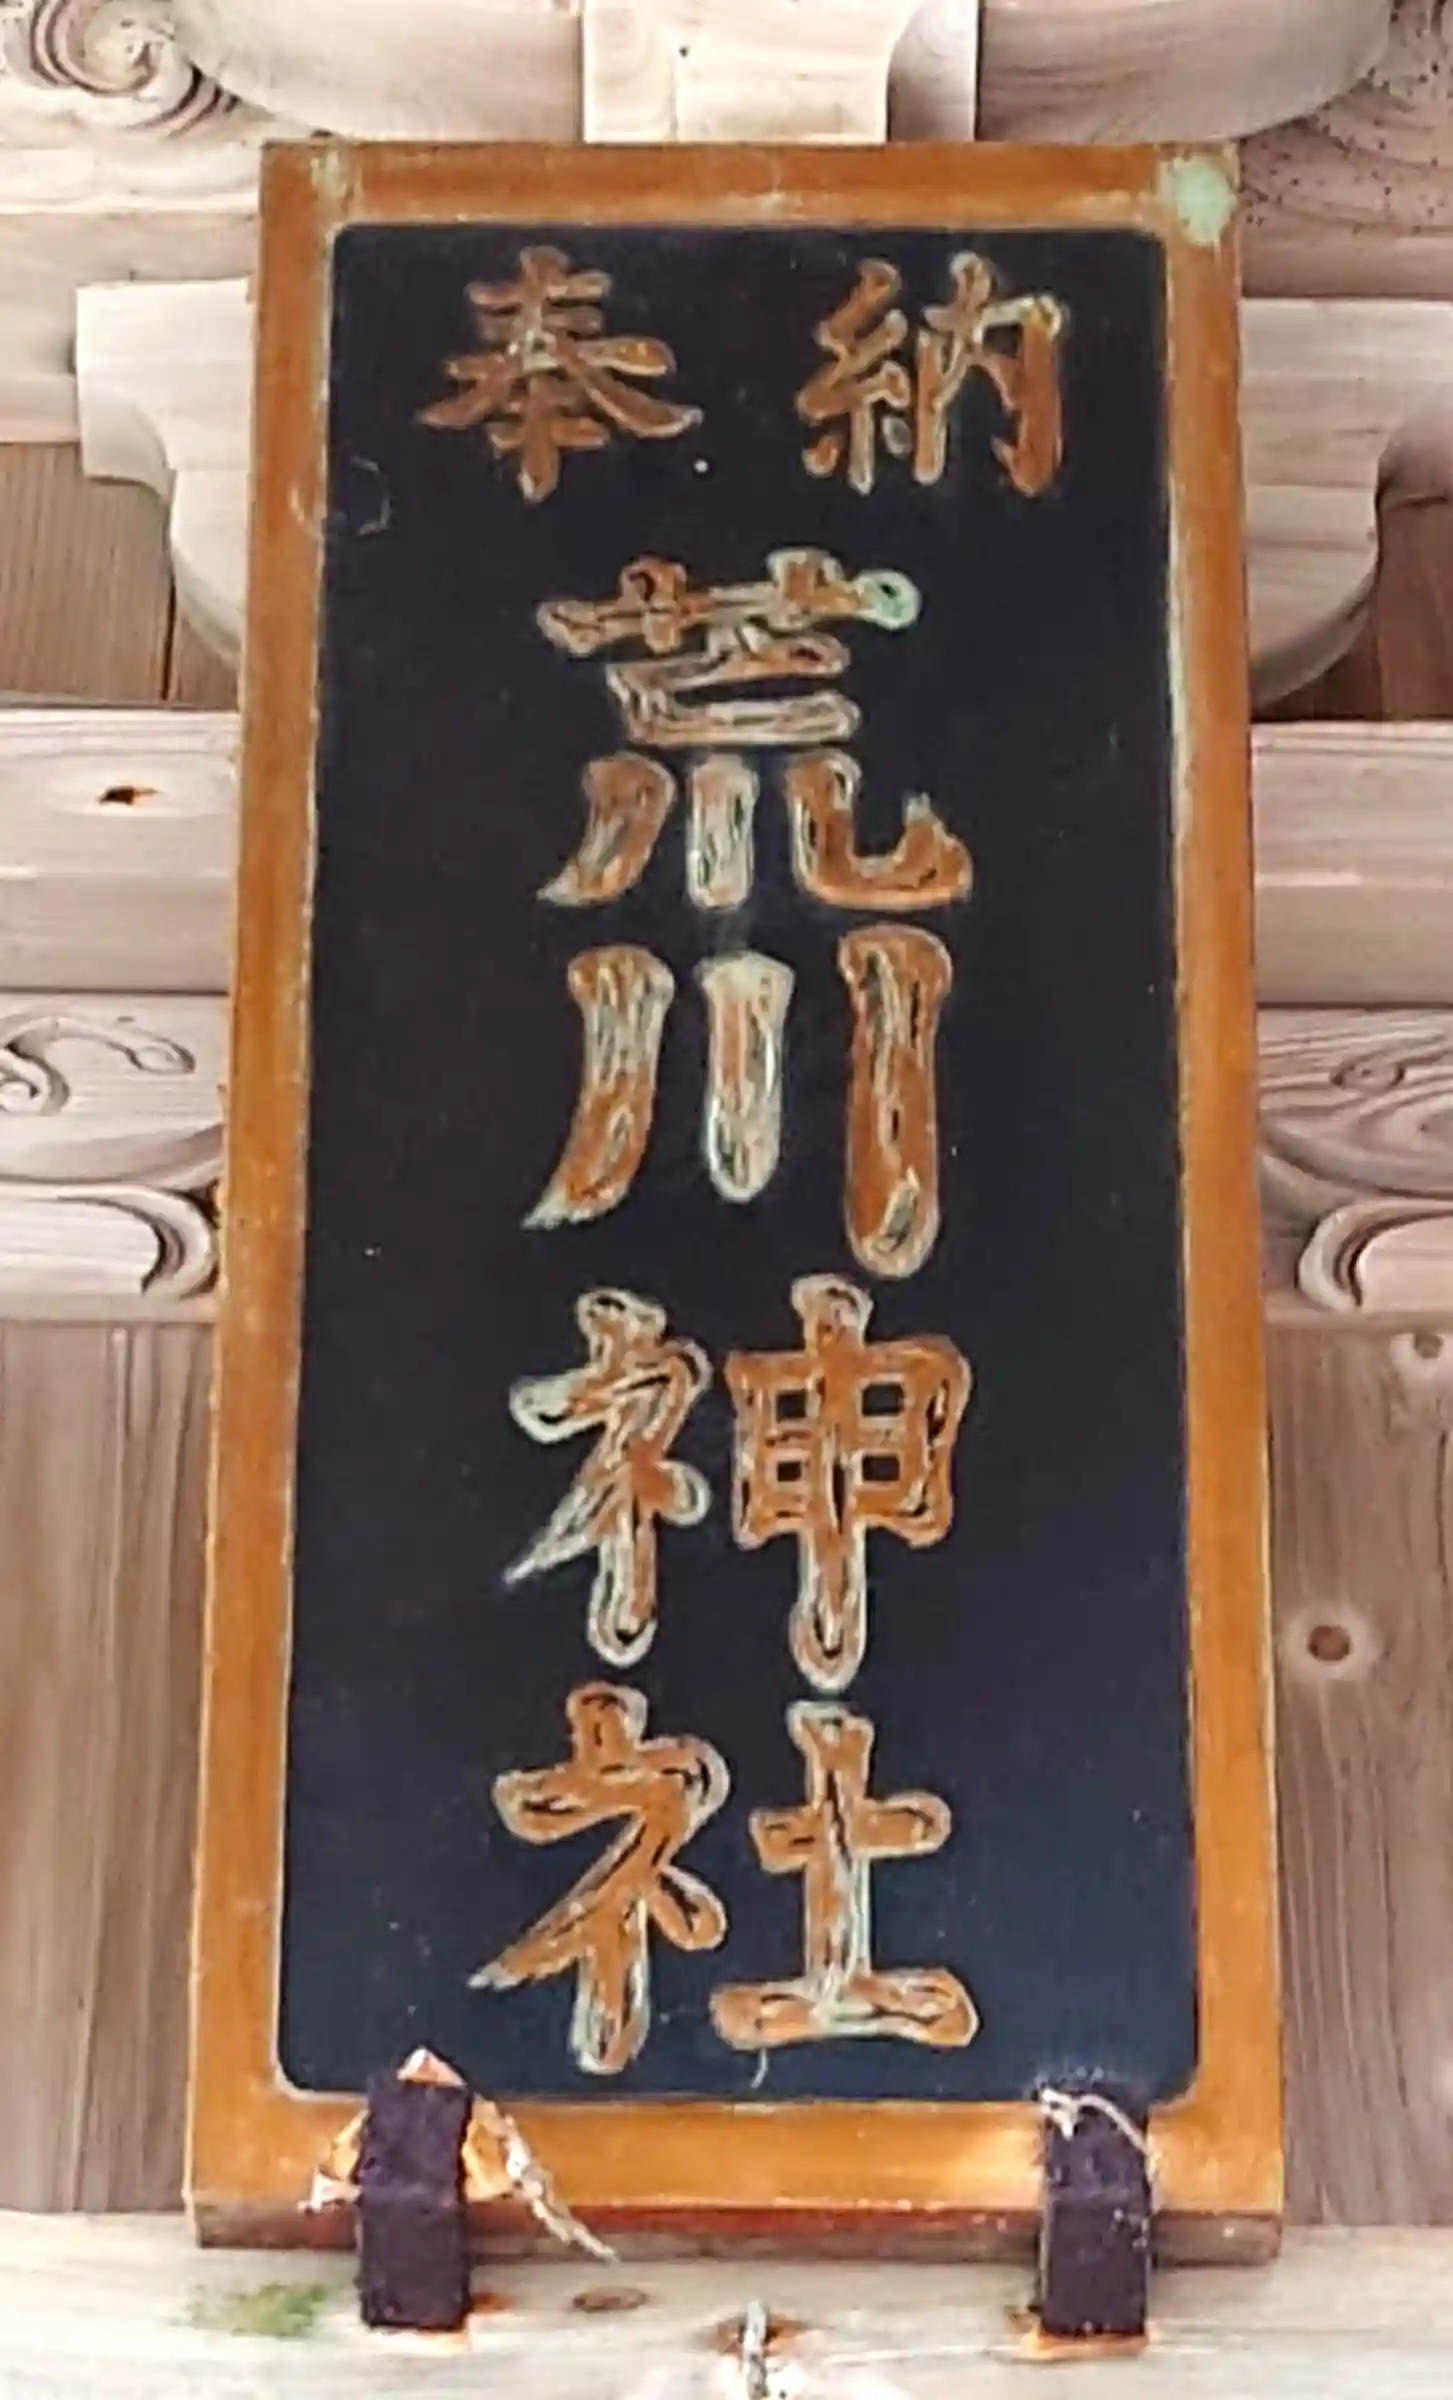 奉納
荒川神社